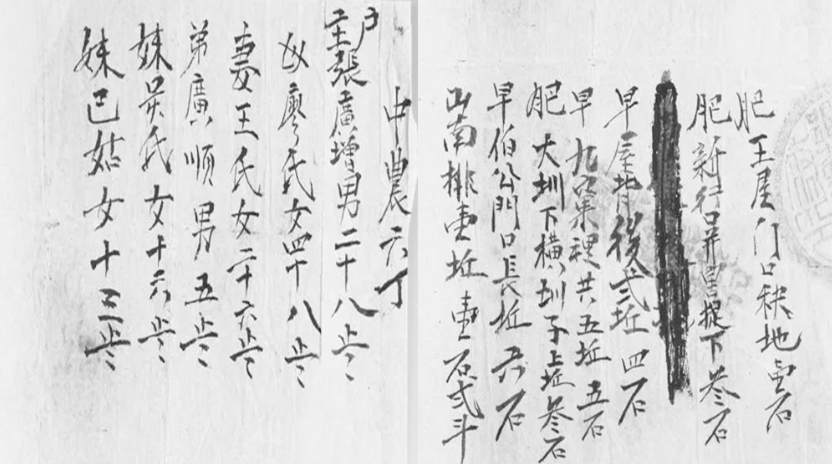 肥王屋门口秧地壹石
肥新行口井官堤下叁石
早屋背後弍坵四石
早九菜裡共五坵五石
肥大圳下横圳子上坵叁石
早伯公門口長坵六石
山南排壹坵壹石弍斗
中農六丁
户主張廣增男二十八歲
母廖氏女四十八歲
妻王氏女二十六歲
弟廣順男五歲
妹吴氏女十六歲
妹已姑女十三歲